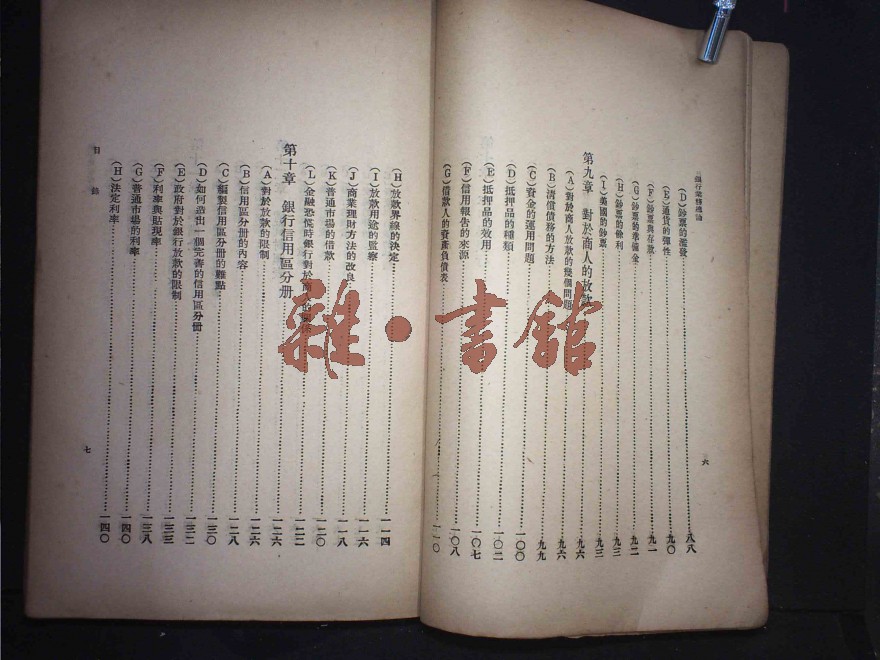 銀行業務通論
(D)鈔票的濫發 八八
(E)通貨的彈性 九〇
(F)鈔票與存款 九一
(G)鈔票的準備金 九二
(H)鈔票的餘利 九三
(I)美國的鈔票 九三
第九章 對於商人的放款 九六
(A)對於商人放款的幾個問題 九六
(B)清償債務的方法 九九
(C)資金的運用問題 一〇〇
(D)抵押品的種類 一〇二
(E)抵押品的效用 一〇七
(F)信用報告的來源 一〇八
(G)借款人的資產負債表 一一〇
六
(H)放款界線的決定 一一四
(I)放款用途的監察 一一六
(J)商業理財方法的改良 一一八
(K)普通市場的借款 一二〇
(L)金融恐慌時銀行對於商 的關係 一二二
第十章 銀行信用區分册 一二六
(A)對於放款的限制 一二六
(B)信用區分册的內容 一二八
(C)編製信用區分册的難點 一三〇
(D)如何造出一個完善的信用區分册 一三二
(E)政府對於銀行放款的限制 一三三
(F)利率與貼現率 一三八
(G)普通市場的利率 一四〇
(H)法定利率 一四〇
目錄
七
雜·書館